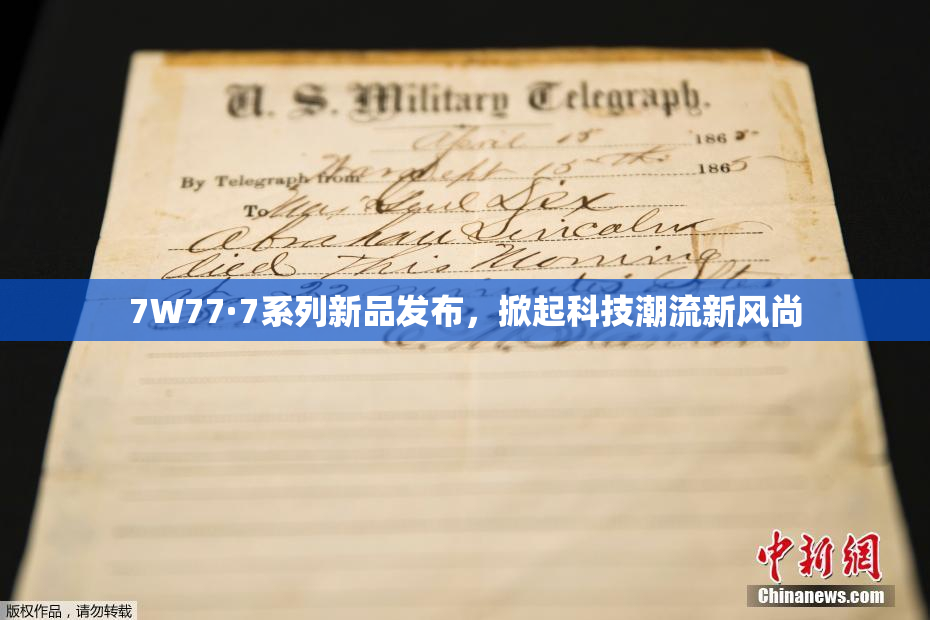 U. S. Military Telegraph.
April 15 1865
By Telegraph from War Dept 15th 1865
To Maj Genl Dix
Abraham Lincoln
died This Morning
22 minutes after
7W77·7系列新品发布，掀起科技潮流新风尚
中新網
Chinanews.com
版权作品，请勿转载